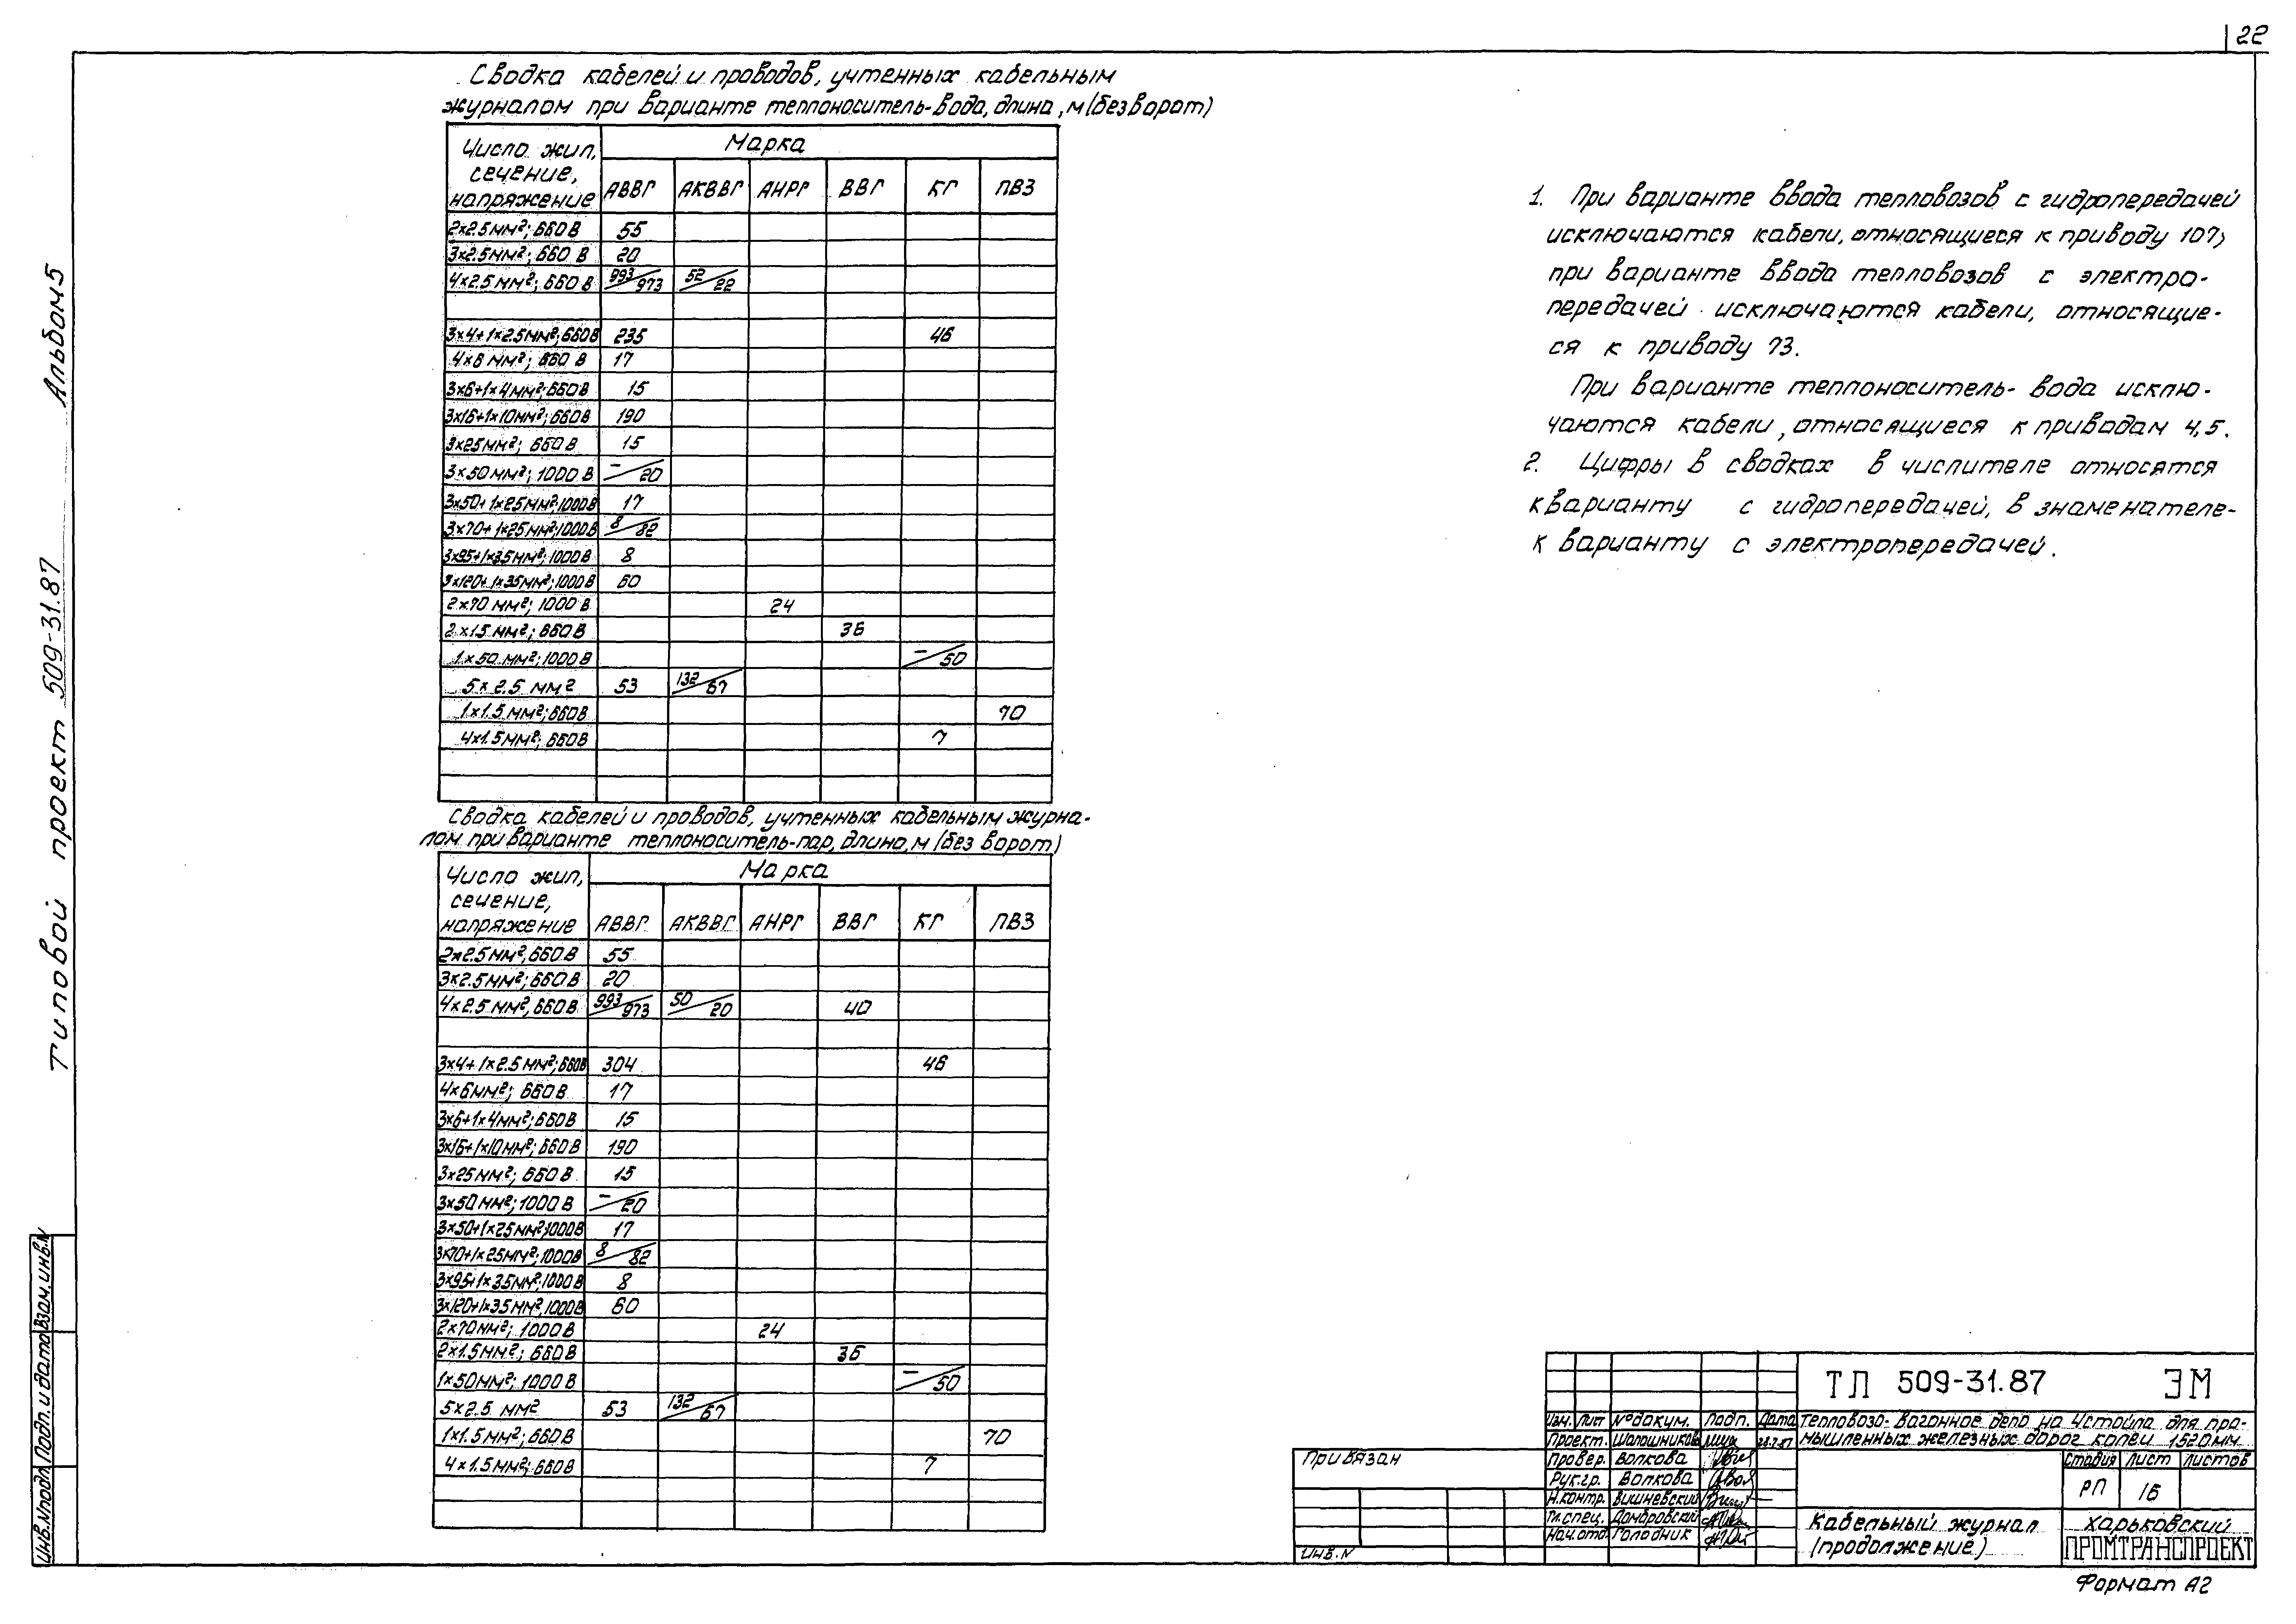 22
Сводка кабелей и проводов, учтенных кабельным
журналом при варианте теплоноситель-вода, длина, м (без ворот)
Число жил, сечение, напряжение | Марка
АВВГ | АКВВГ | АНРГ | ВВГ | КГ | ПВЗ
2×2.5 мм²; 660 В | 55
3×2.5 мм²; 660 В | 20
4×2.5 мм²; 660 В | 993/973 | 52/22
3×4+1×2.5 мм²; 660 В | 235 | 46
4×6 мм²; 660 В | 17
3×6+1×4 мм²; 660 В | 15
3×16+1×10 мм²; 660 В | 190
3×25 мм²; 660 В | 15
3×50 мм²; 1000 В | –/20
3×50+1×25 мм²; 1000 В | 17
3×70+1×25 мм²; 1000 В | 8/82
3×95+1×35 мм²; 1000 В | 8
3×120+1×35 мм²; 1000 В | 60
2×70 мм²; 1000 В | 24
2×1.5 мм²; 660 В | 36
1×50 мм²; 1000 В | –/50
5×2.5 мм² | 53 | 132/67
1×1.5 мм²; 660 В | 70
4×1.5 мм²; 660 В | 7
Сводка кабелей и проводов, учтенных кабельным журна-
лом при варианте теплоноситель-пар, длина, м (без ворот)
Число жил, сечение, напряжение | Марка
АВВГ | АКВВГ | АНРГ | ВВГ | КГ | ПВЗ
2×2.5 мм²; 660 В | 55
3×2.5 мм²; 660 В | 20
4×2.5 мм²; 660 В | 993/973 | 50/20 | 40
3×4+1×2.5 мм²; 660 В | 304 | 46
4×6 мм²; 660 В | 17
3×6+1×4 мм²; 660 В | 15
3×16+1×10 мм²; 660 В | 190
3×25 мм²; 660 В | 15
3×50 мм²; 1000 В | –/20
3×50+1×25 мм²; 1000 В | 17
3×70+1×25 мм²; 1000 В | 8/82
3×95+1×35 мм²; 1000 В | 8
3×120+1×35 мм²; 1000 В | 60
2×70 мм²; 1000 В | 24
2×1.5 мм²; 660 В | 36
1×50 мм²; 1000 В | –/50
5×2.5 мм² | 53 | 132/67
1×1.5 мм²; 660 В | 70
4×1.5 мм²; 660 В | 7
1. При варианте ввода тепловозов с гидропередачей
исключаются кабели, относящиеся к приводу 107;
при варианте ввода тепловозов с электро-
передачей исключаются кабели, относящие-
ся к приводу 73.
При варианте теплоноситель-вода исклю-
чаются кабели, относящиеся к приводам 4,5.
2. Цифры в сводках в числителе относятся
к варианту с гидропередачей, в знаменателе-
к варианту с электропередачей.
Типовой проект 509-31.87 Альбом 5
Инв.№подл. Подп. и дата Взам.инв.№
Привязан
Инв.№
ТП 509-31.87 ЭМ
Изм. Лист № докум. Подп. Дата
Проект. Шапошникова 28.7.87
Провер. Волкова
Рук.гр. Волкова
Н.контр. Вишневский
Гл.спец. Домбровский
Нач.отд. Голодник
Тепловозо-вагонное депо на 4 стойла для про-
мышленных железных дорог колеи 1520 мм
Стадия Лист Листов
РП 16
Кабельный журнал
(продолжение)
Харьковский
ПРОМТРАНСПРОЕКТ
Формат А2